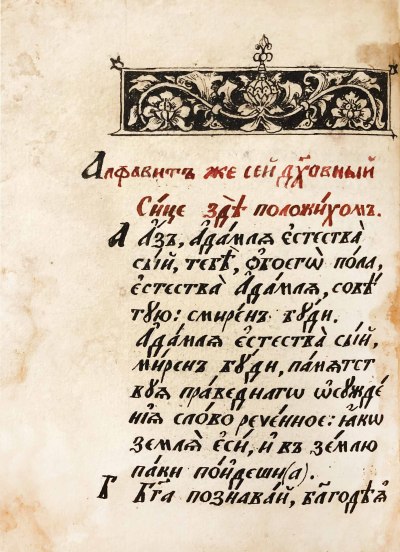 Алфави́тъ же се́й дꙋхо́вный
Си́це здѣ̀ положи́хомъ.
А А́зъ, а҆да́млѧ є҆стества̀
сы́й, тебѣ̀, ѻ҆боегѡ̀ по́ла,
є҆стества̀ а҆да́млѧ, совѣ́
тꙋю: смире́нъ бꙋ́ди.
А҆да́млѧ є҆стества̀ сы́й,
ми́ренъ бꙋ́ди, па́мѧтст
вꙋѧ пра́веднагѡ ѡ҆сꙋжде́
нїѧ сло́во рече́нное: ꙗ҆́кѡ
землѧ̀ є҆сѝ, и҆ въ зе́млю
па́ки по́йдеши(а).
Б Бг҃а познава́й, бл҃годѣѧ